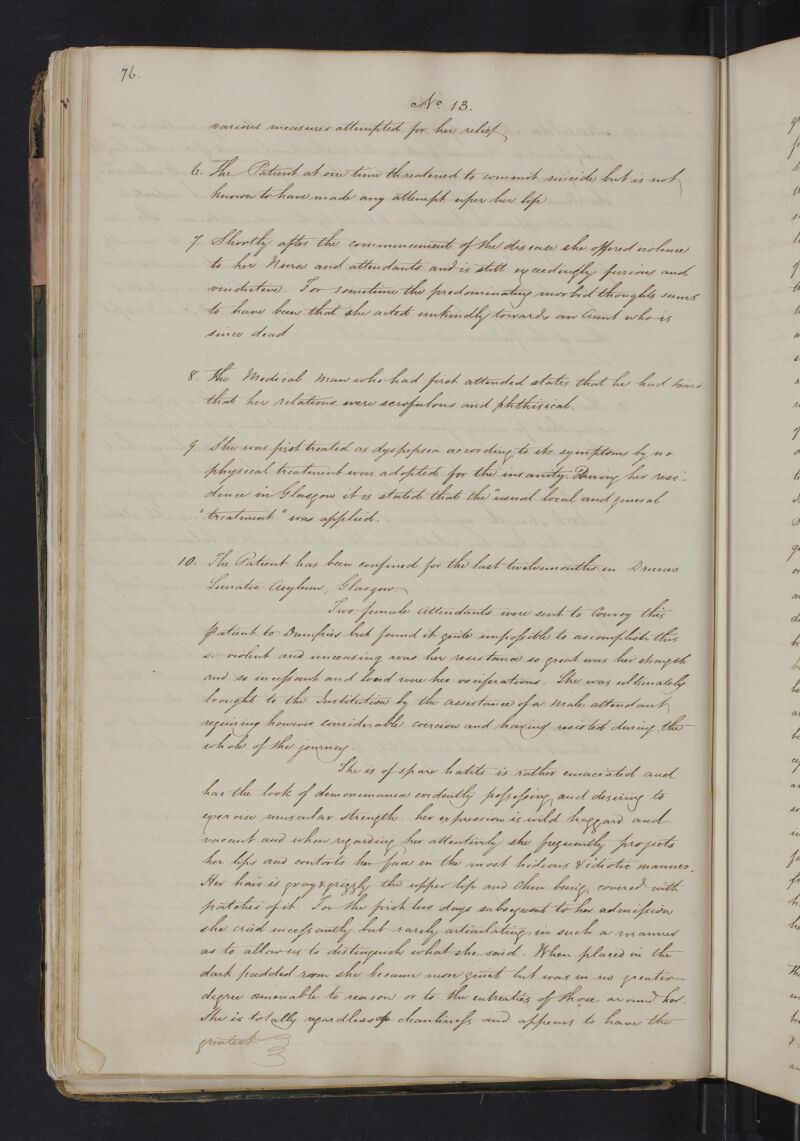 76.
No 13.
various measures attempted for her relief
6. The Patient at one time threatened to commit suicide but is not
known to have made any attempt upon her life
7 Shortly after the commencement of the disease she offered violence
to her Nurse and attendants and is still exceedingly furious and
vindictive. For sometime the predominating morbid thoughts seems
to have been that she acted unkindly towards an Aunt who is
since dead
8. The Medical man who had first attended states that he had heard
that her relations were scrofulous and phthisical.
9 She was first treated as dyspepsia according to its symptoms by no
physical treatment was adopted for the insanity. During her resi-
dence in Glasgow it is stated that the "usual local and general
"treatment" was applied.
10. The Patient has been confined for the last twelvemonths in
Lunatic Asylum, Glasgow
Two female Attendants were sent to Convey this
Patient to Dumfries but found it quite impossible to accomplish this
so violent and unceasing was her resistance so great was her strength
and so incessant and loud were her vociferations. She was ultimately
brought to the Institution by the assistance of a Male attendant
requiring however considerable coercion and having resisted during the
whole of the journey.
She is of spare habits is rather emaciated and
has the look of demonomania evidently possessing and desiring to
exercise muscular strength. her expression is wild haggard and
vacant and when regarding her attentively she frequently projects
her lips and contorts her face in the most hideous & idiotic manner.
Her hair is gray & grizzly the upper lip and Chin being covered with
patches of it. For the first two days subsequent to her admission
she cried incessantly but rarely articulating in such a manner
as to allow us to distinguish what she said. When placed in the
dark padded room she became more quiet but was in no greater
degree amenable to reason or to the entreaties of those around her.
She is totally regardless of cleanliness and appears to have the
greatest